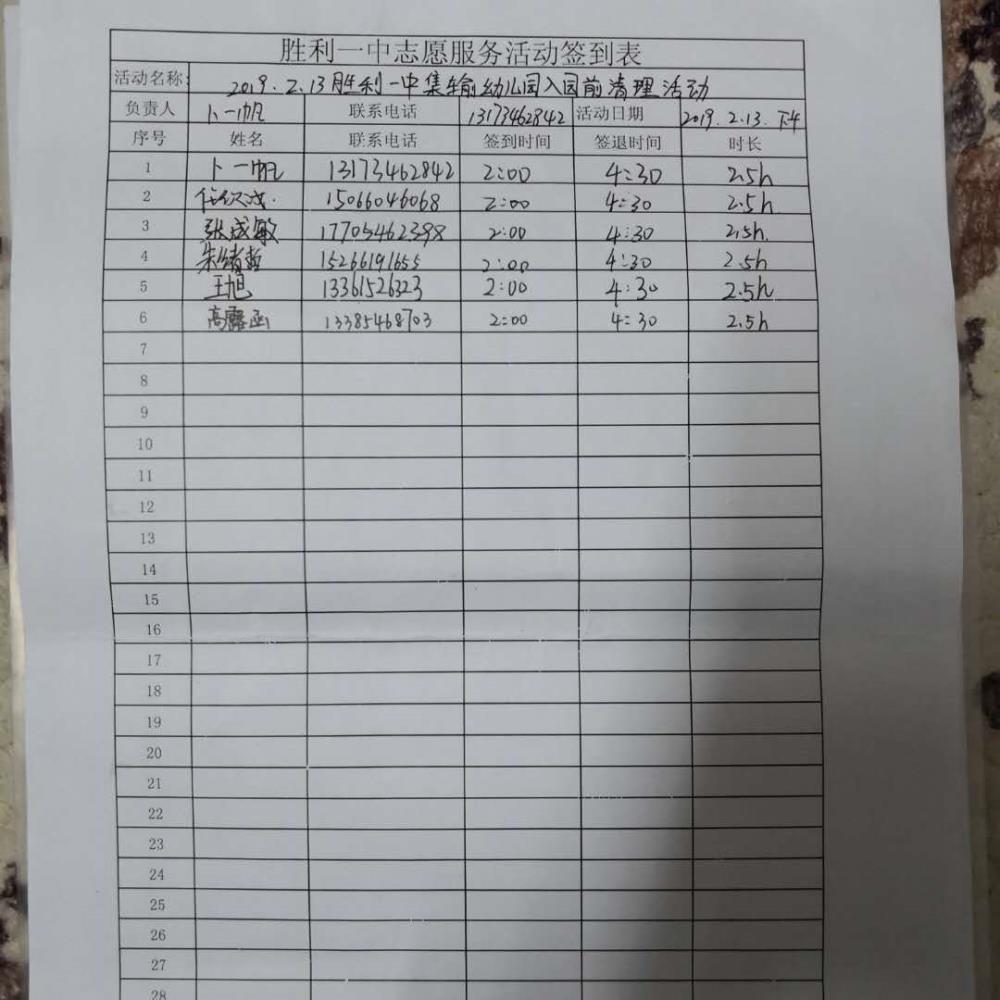 胜利一中志愿服务活动签到表
活动名称: 2019.2.13胜利一中集输幼儿园入园前清理活动
负责人 卜一帆 联系电话 13173462842 活动日期 2019.2.13.下午
序号 姓名 联系电话 签到时间 签退时间 时长
1 卜一帆 13173462842 2:00 4:30 2.5h
2 15066046068 2:00 4:30 2.5h
3 张成敏 17705462398 2:00 4:30 2.5h.
4 朱绪哲 15266191655 2:00 4:30 2.5h
5 王旭 13361526323 2:00 4:30 2.5h
6 高露函 13385468703 2:00 4:30 2.5h
7
8
9
10
11
12
13
14
15
16
17
18
19
20
21
22
23
24
25
26
27
28